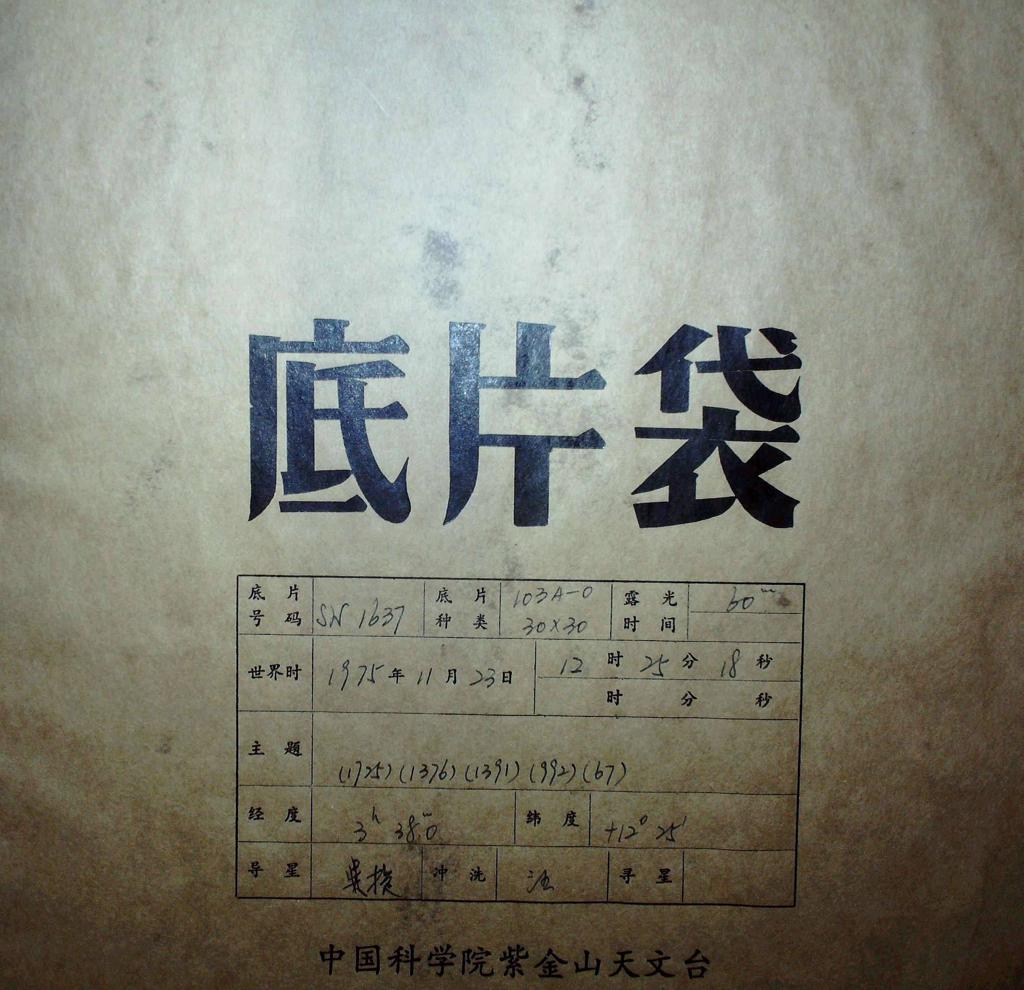 底片袋
底片号码 SN 1637 底片种类 103A-O 30×30 露光时间 60ᵐ
世界时 1975年11月23日 12时25分18秒
时 分 秒
主题 (1725)(1376)(1391)(992)(67)
经度 3ʰ 38ᵐ.0 纬度 +12° 25′
导星 冲洗 汪 寻星
中国科学院紫金山天文台